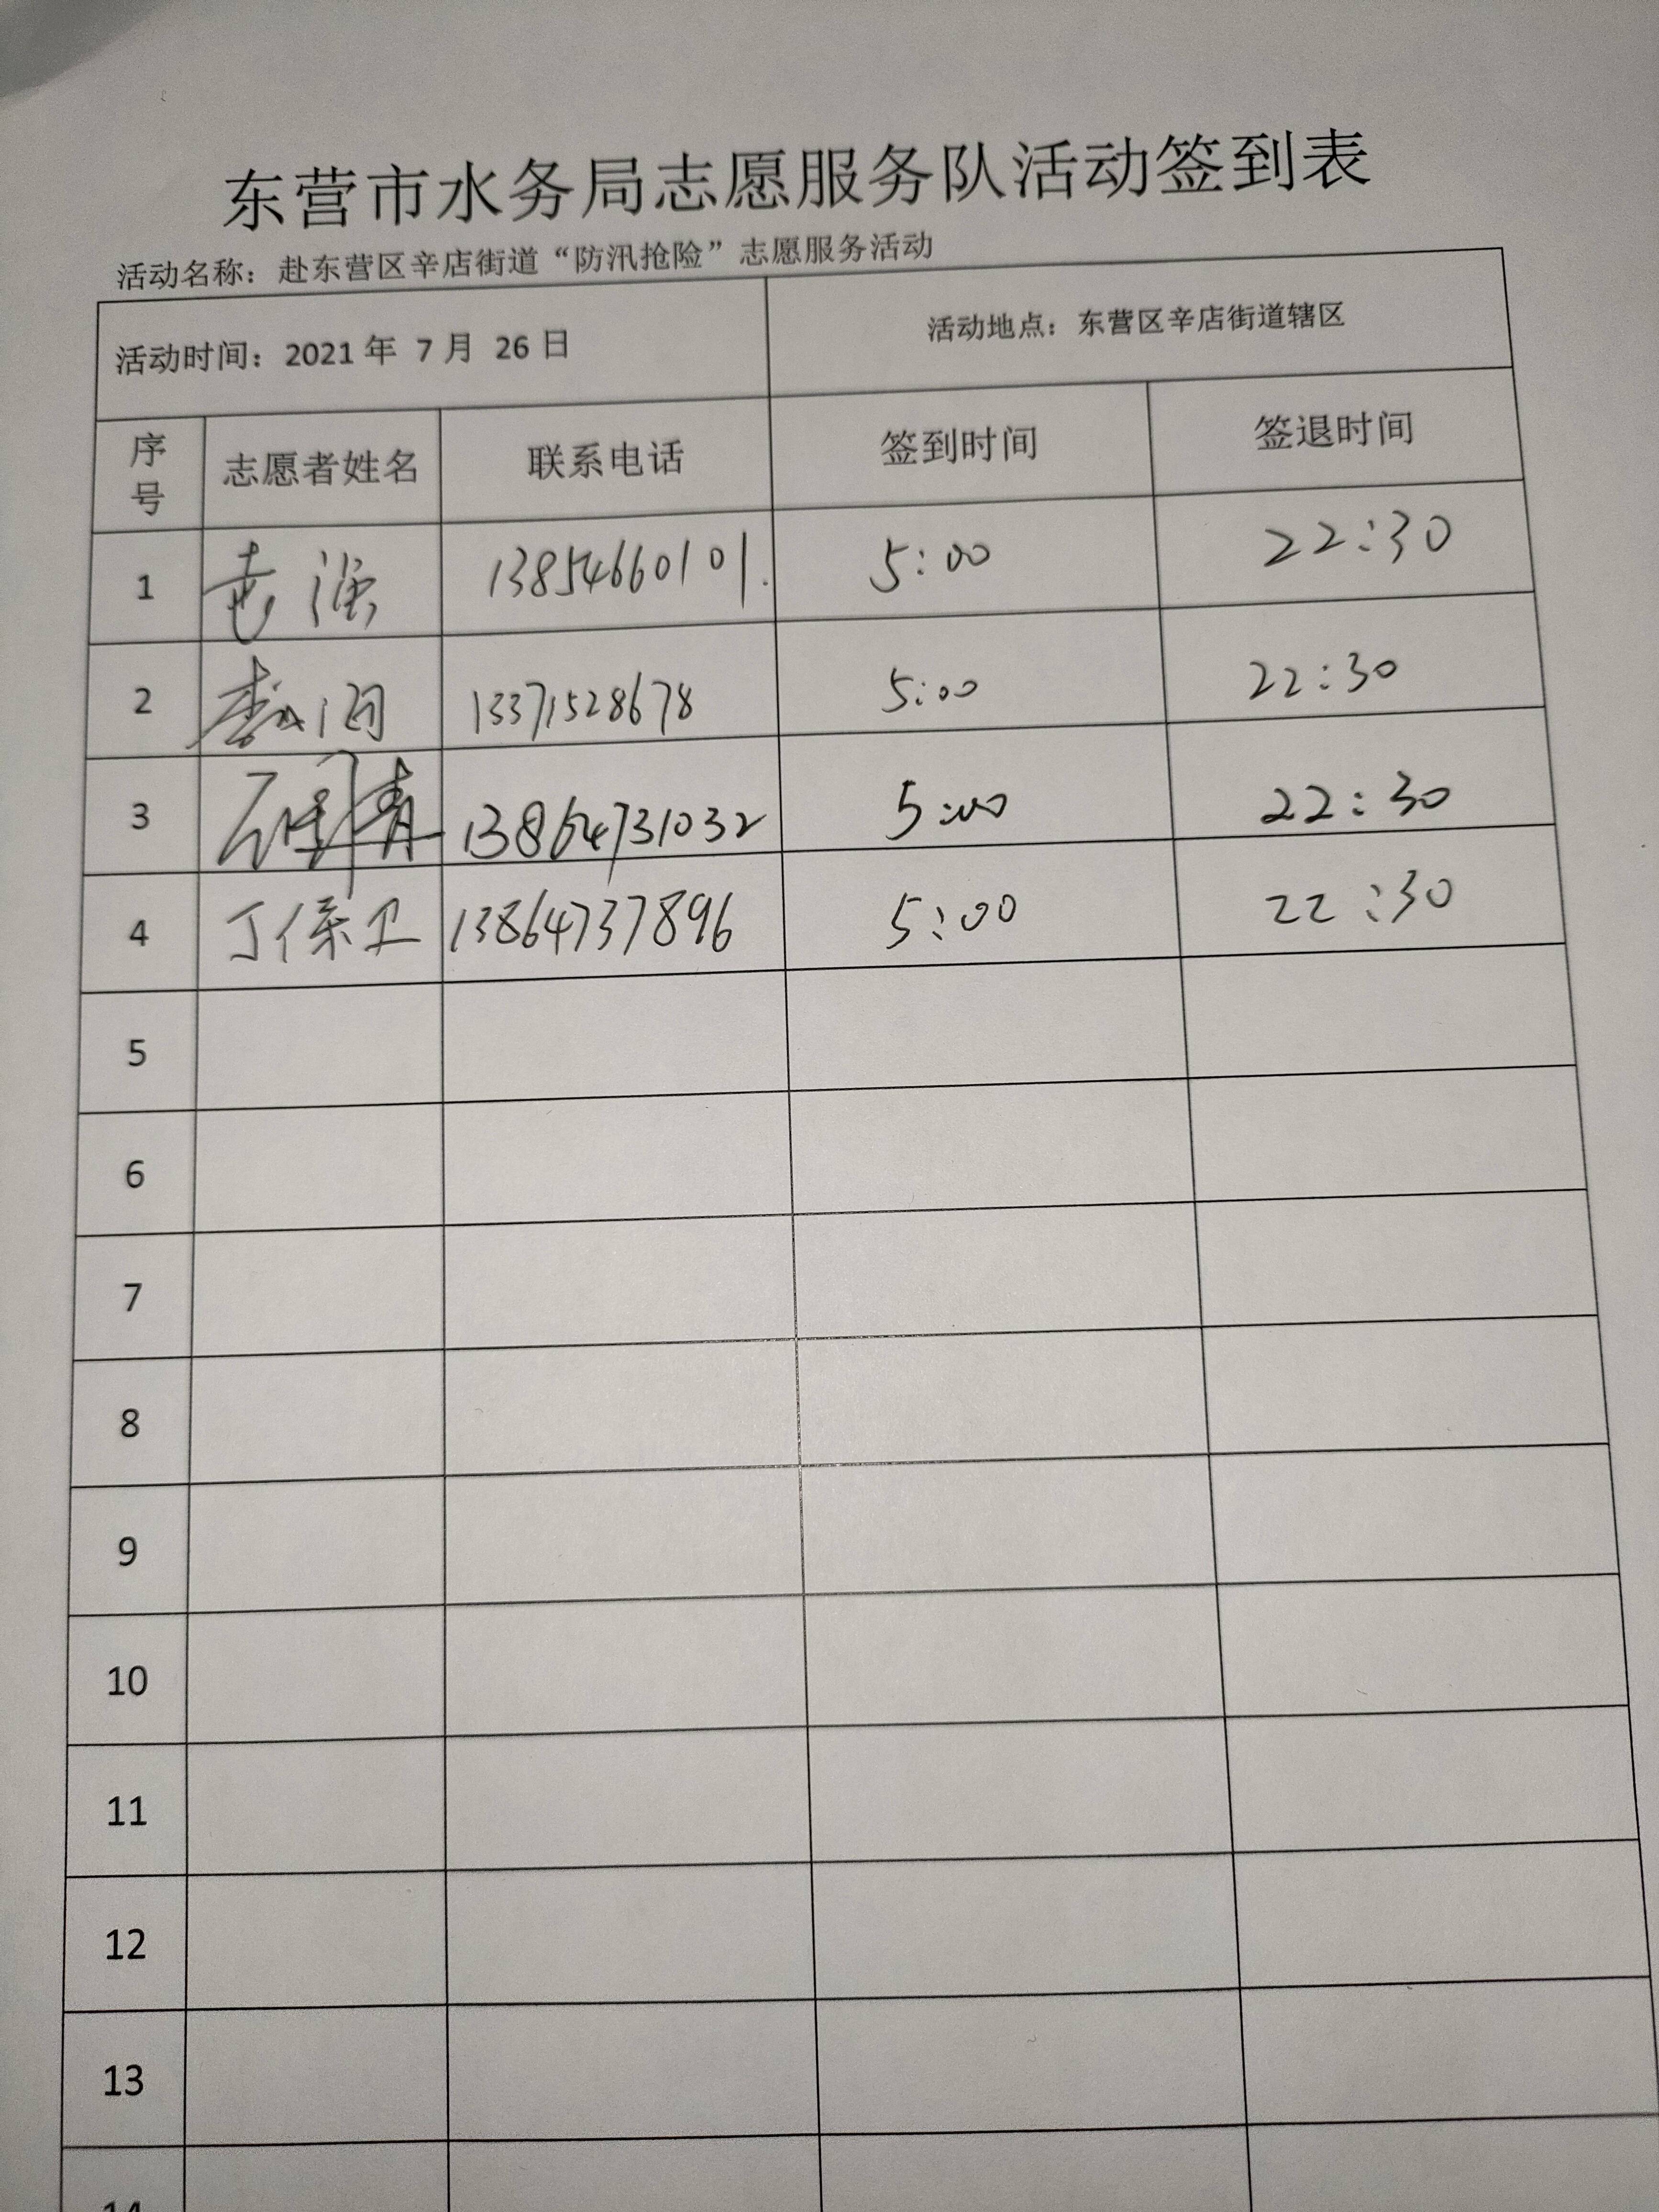 东营市水务局志愿服务队活动签到表
活动名称：赴东营区辛店街道“防汛抢险”志愿服务活动
活动时间：2021 年 7 月 26 日 活动地点：东营区辛店街道辖区
序号 志愿者姓名 联系电话 签到时间 签退时间
1 13854660101. 5:00 22:30
2 13371528678 5:00 22:30
3 13864731032 5:00 22:30
4 丁保卫 13864737896 5:00 22:30
5
6
7
8
9
10
11
12
13
14